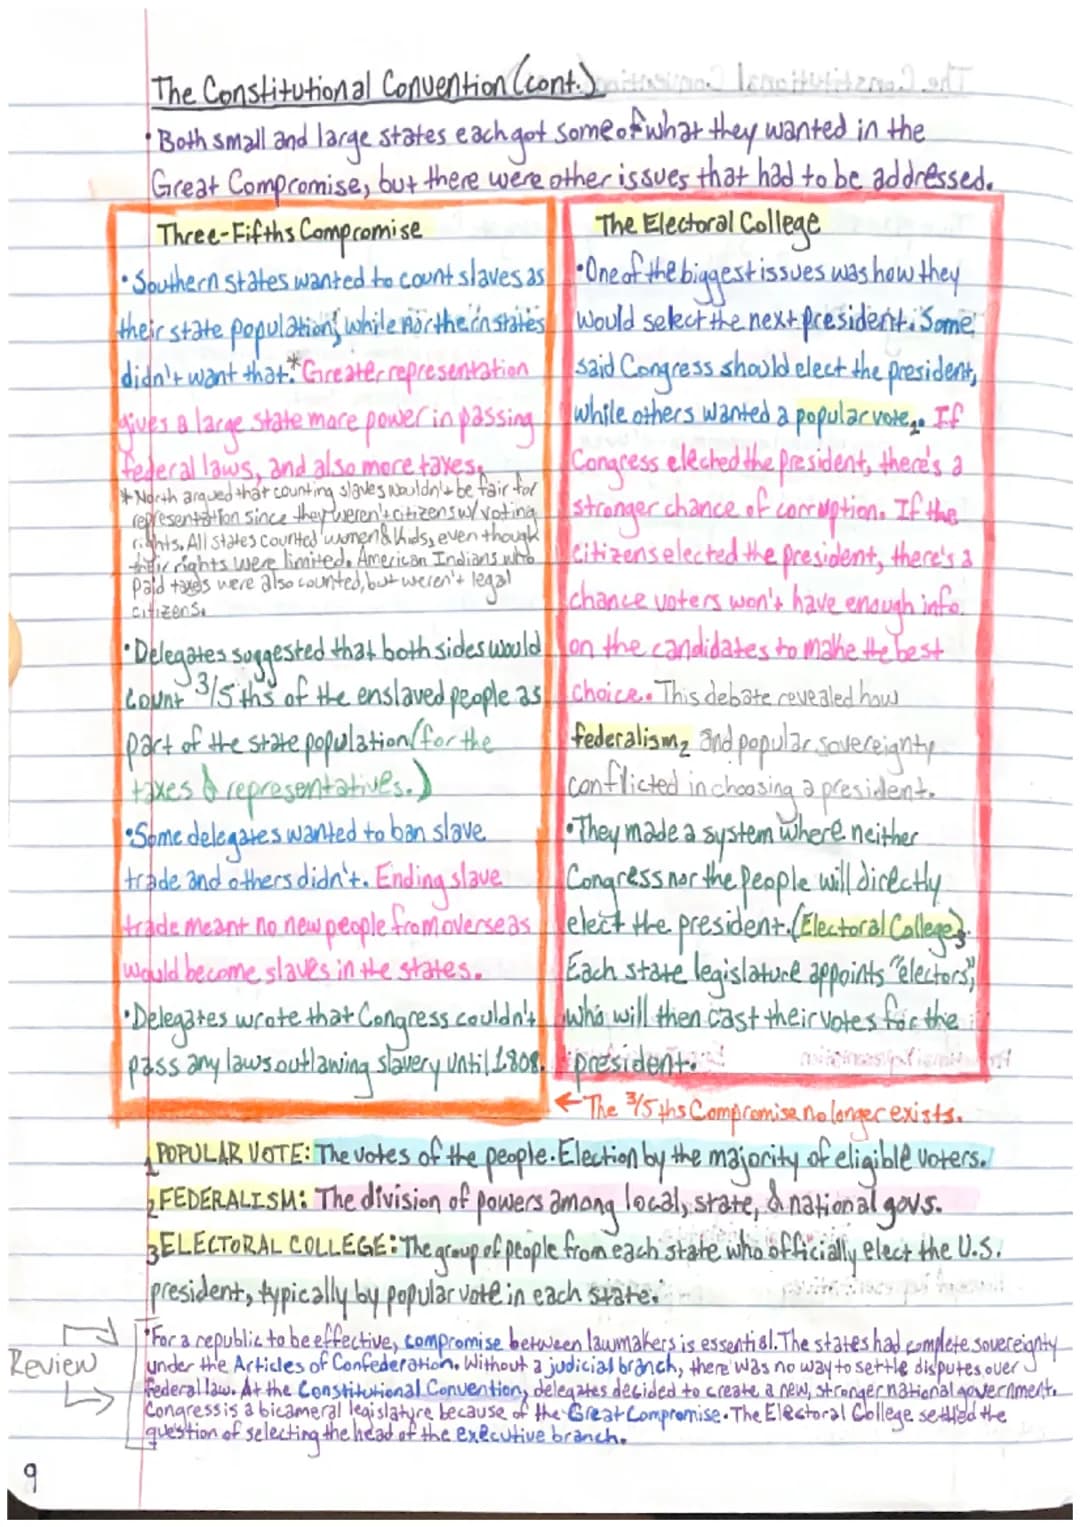 The Constitutional Convention (cont.)
• Both small and large states each got some of what they wanted in the
Great Compromise, but there were other issues that had to be addressed.
Three-Fifths Compromise
• Southern states wanted to count slaves as
their state population, while northern states
didn't want that.* Greater representation
gives a large state more power in passing
federal laws, and also more taxes.
* North argued that counting slaves wouldn't be fair for
representation since they weren't citizens w/ voting
rights. All states counted women & kids, even though
their rights were limited. American Indians who
paid taxes were also counted, but weren't legal
citizens.
• Delegates suggested that both sides would
count 3/5 ths of the enslaved people as
part of the state population (for the
taxes & representatives.)
• Some delegates wanted to ban slave
trade and others didn't. Ending slave
trade meant no new people from overseas
would become slaves in the states.
• Delegates wrote that Congress couldn't
pass any laws outlawing slavery until 1808.
The Electoral College
• One of the biggest issues was how they
would select the next president. Some
said Congress should elect the president,
while others wanted a popular vote₁. If
Congress elected the president, there's a
stronger chance of corruption. If the
citizens elected the president, there's a
chance voters won't have enough info.
on the candidates to make the best
choice. This debate revealed how
federalism₂ and popular sovereignty
conflicted in choosing a president.
• They made a system where neither
Congress nor the people will directly
elect the president. (Electoral College)₃.
Each state legislature appoints "electors",
who will then cast their votes for the
president.
← The 3/5 ths Compromise no longer exists.
1 POPULAR VOTE: The votes of the people. Election by the majority of eligible voters.
2 FEDERALISM: The division of powers among local, state, & national govs.
3 ELECTORAL COLLEGE: The group of people from each state who officially elect the U.S.
president, typically by popular vote in each state.
Review
• For a republic to be effective, compromise between lawmakers is essential. The states had complete sovereignty
under the Articles of Confederation. Without a judicial branch, there was no way to settle disputes over
federal law. At the Constitutional Convention, delegates decided to create a new, stronger national government.
Congress is a bicameral legislature because of the Great Compromise. The Electoral College settled the
question of selecting the head of the executive branch.
9